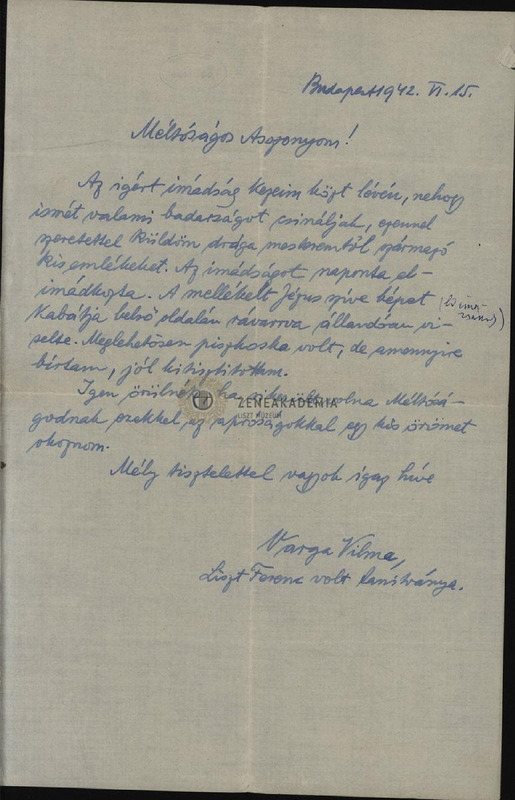 Budapest 1942. VI. 15.
Méltóságos Asszonyom!
Az igért imádság kezeim közt lévén, nehogy
ismét valami badarságot csináljak, ezennel
szeretettel küldöm drága mesteremtől származó
kis emlékeket. Az imádságot naponta el-
imádkozta. A mellékelt Jézus szíve képet
kabátja belső oldalán rávarrva állandóan vi-
selte. Meglehetősen piszkoska volt, de amennyire
birtam, jól kitisztitottam.
Igen örülnék, ha sikerült volna Méltósá-
godnak ezekkel az apróságokkal egy kis örömet
okoznom.
Mély tisztelettel vagyok igaz híve
Varga Vilma,
Liszt Ferenc volt tanitványa.
ZENEAKADÉMIA
LISZT MÚZEUM